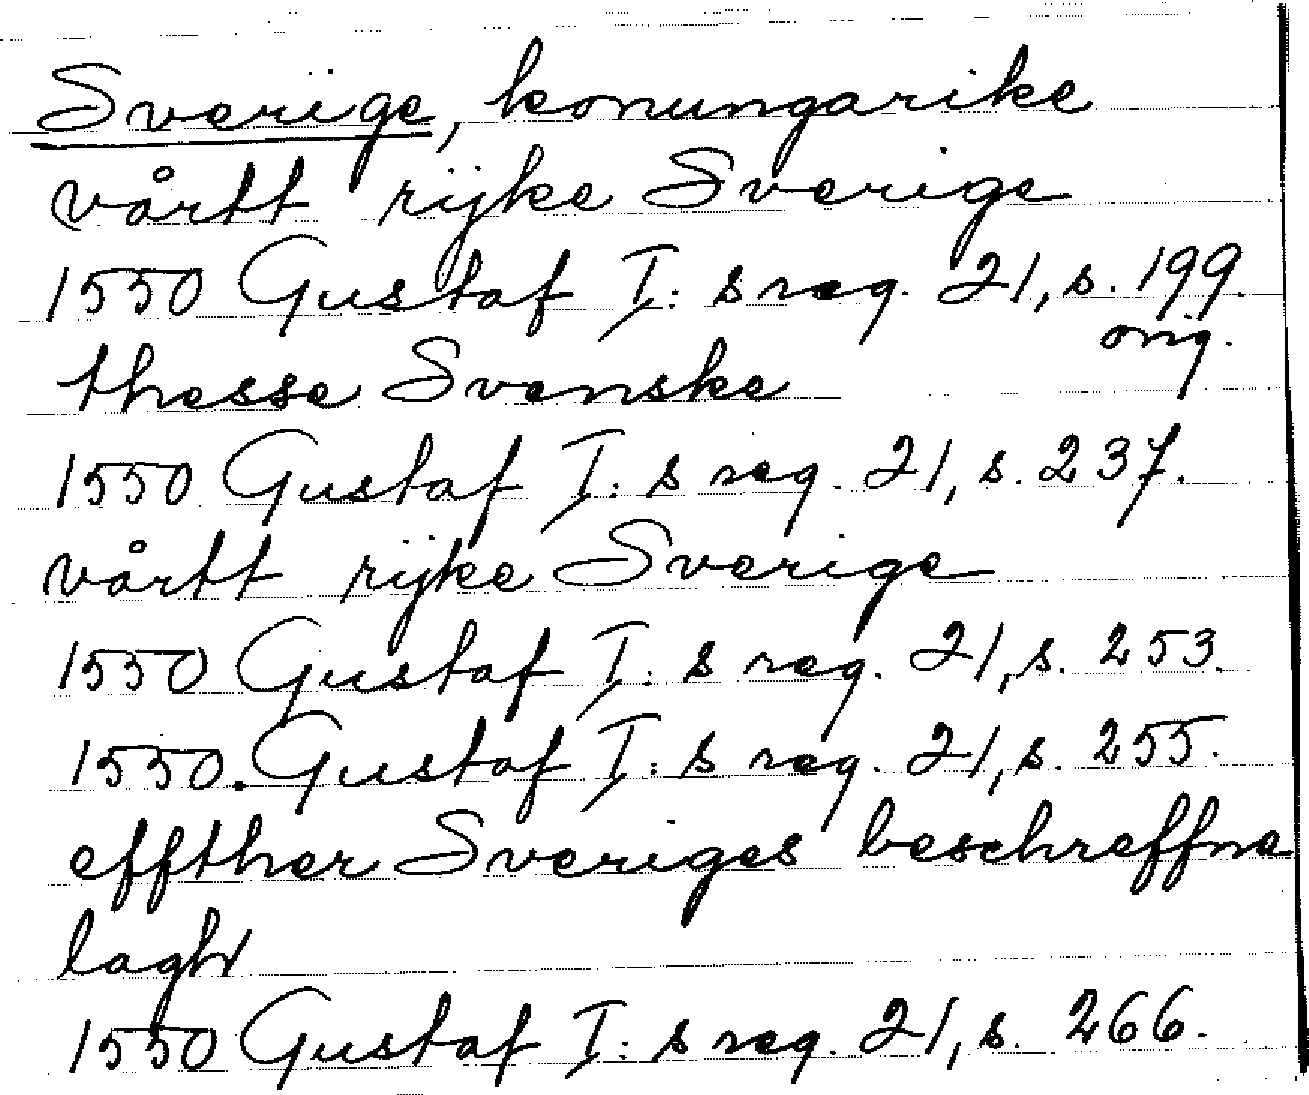 Sverige, konungarike
vårtt rijke Sverige
1550 Gustaf I: s reg. 21, s. 199.
orig.
thesse Svenske
1550 Gustaf I: s reg. 21, s. 237.
vårtt rijke Sverige
1550 Gustaf I: s reg. 21, s. 253.
1550. Gustaf I: s reg. 21, s. 255.
effther Sveriges beschreffne
lagh
1550 Gustaf I: s reg. 21, s. 266.